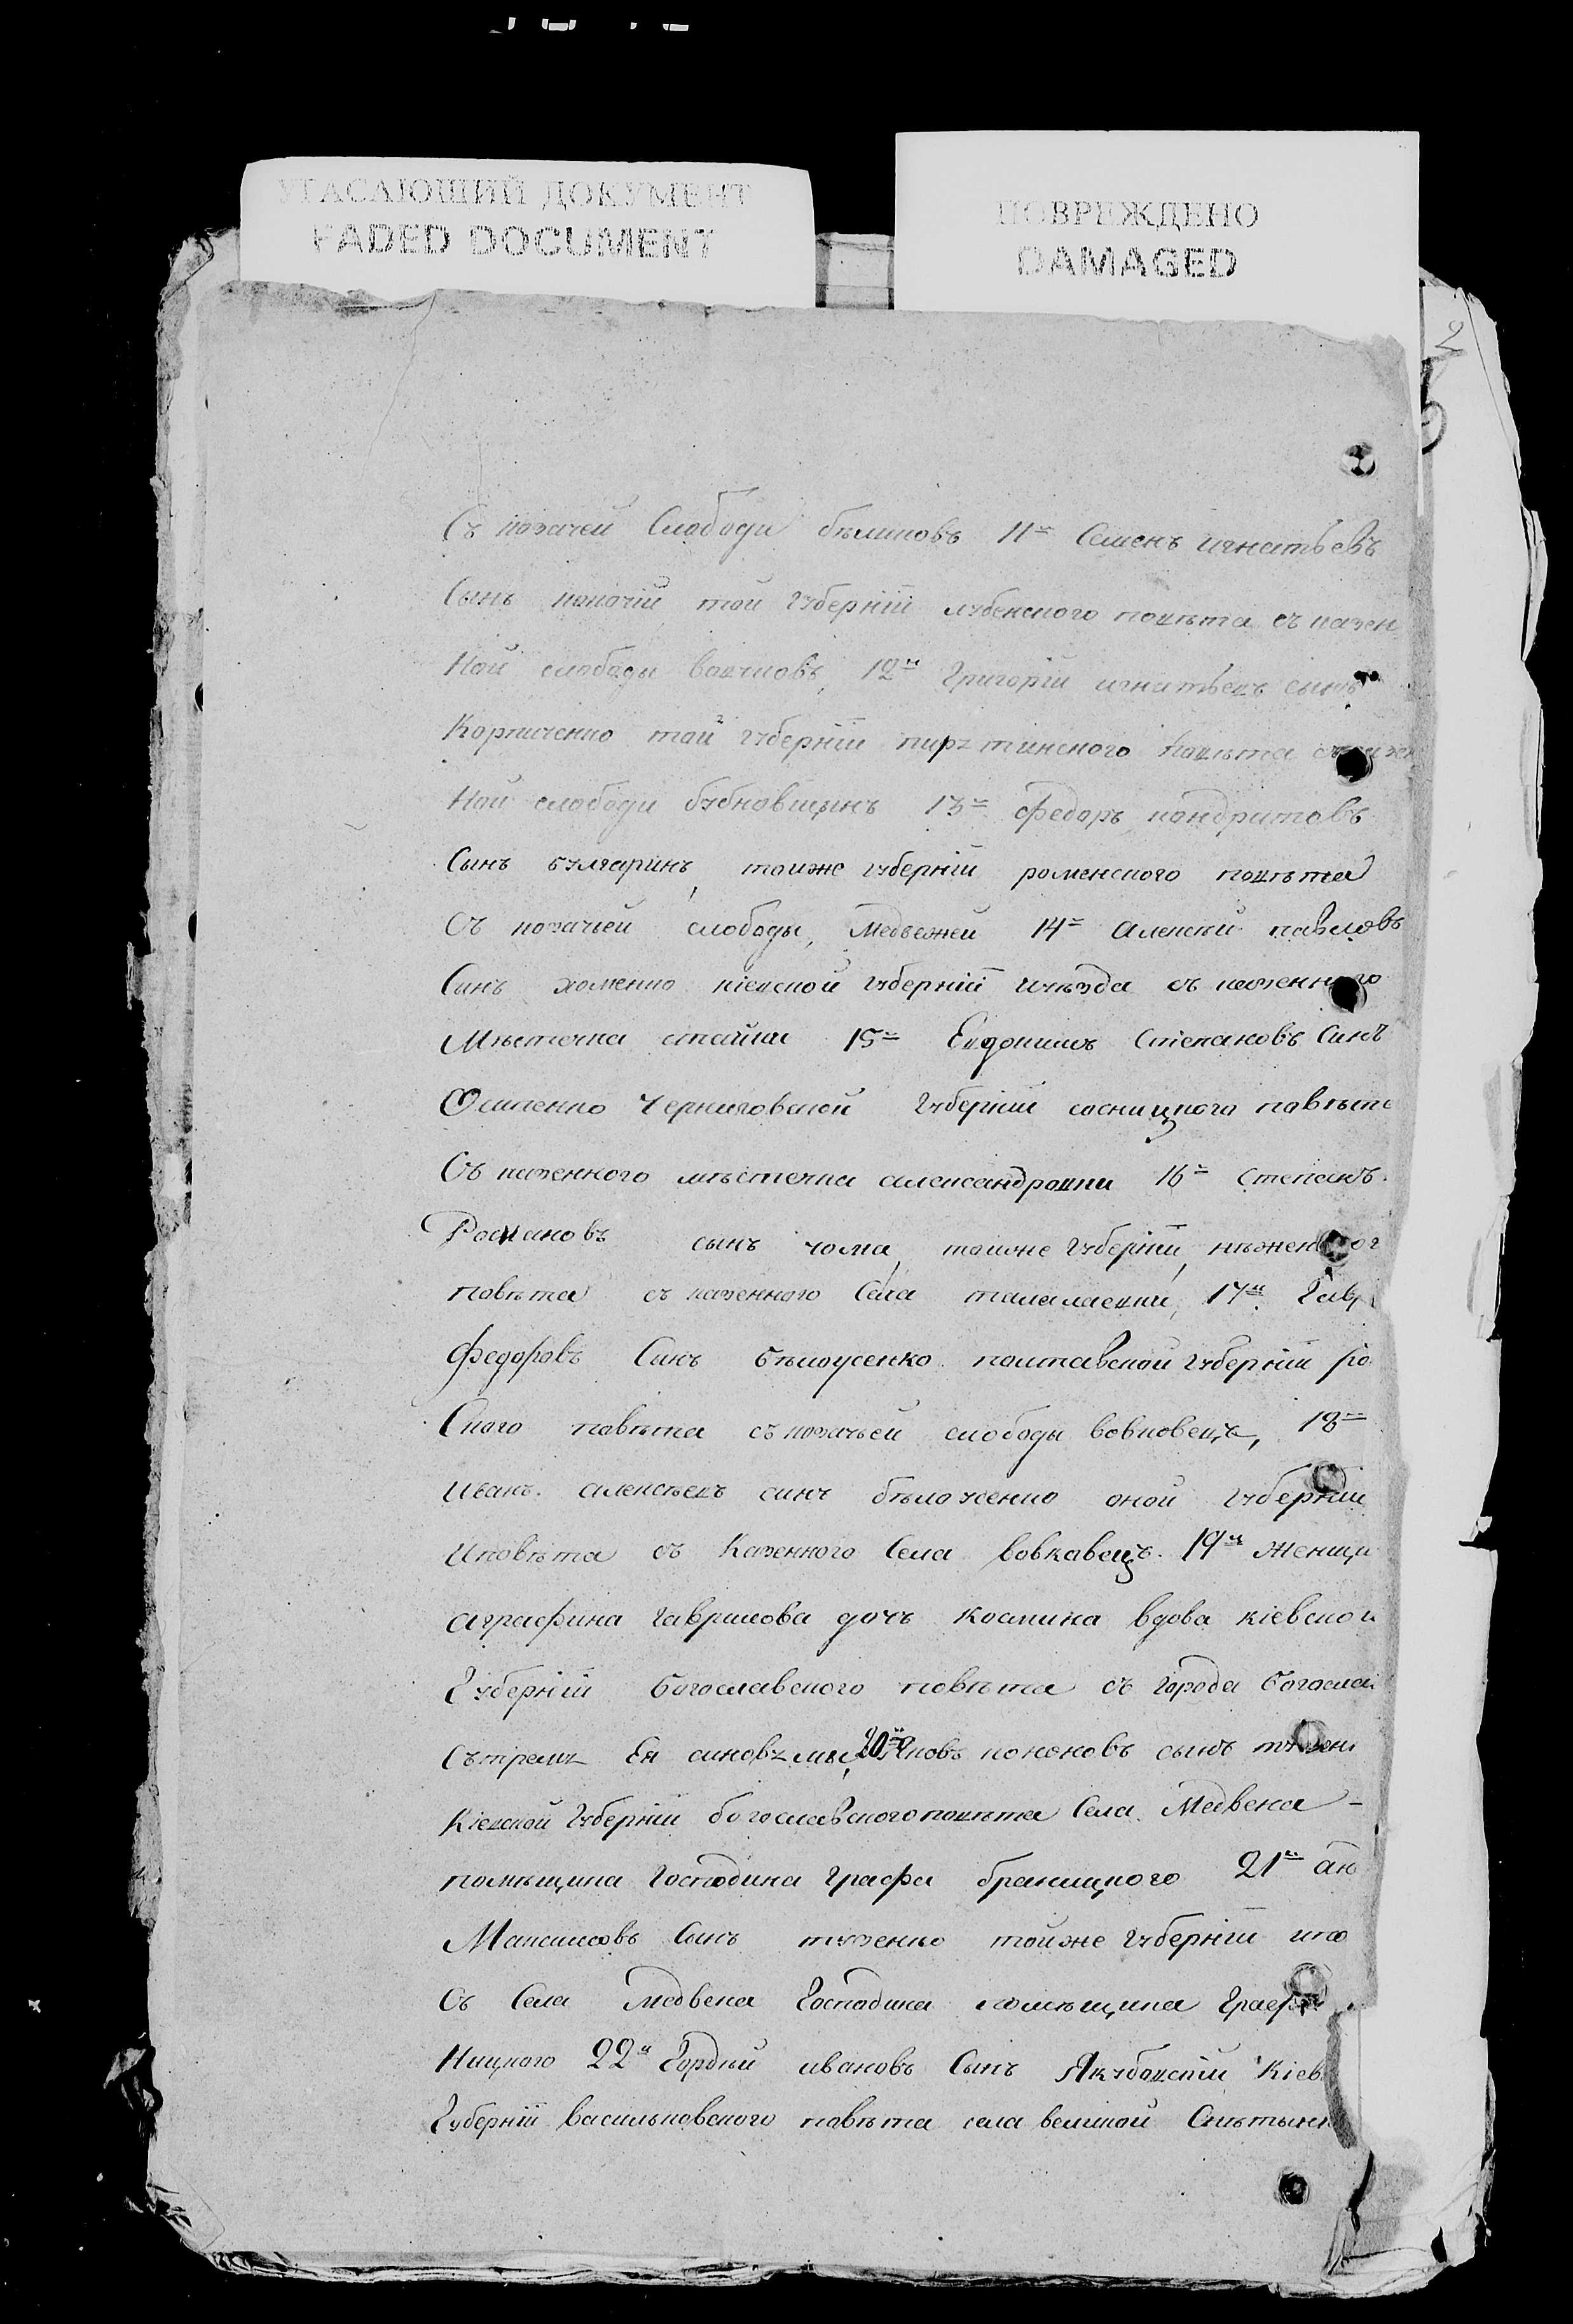 УГАСАЮЩИЙ ДОКУМЕНТ
FADED DOCUMENT
ПОВРЕЖДЕНО
DAMAGED
2
Съ козачей Слободи бѣликовъ 11й Семенъ игнатьевъ
Сынъ той губерніи лубенского повѣта съ казен
Ной слободы вовчковъ, 12й Григорій игнатьевъ сынъ
Корниченко той губерніи пирятинского повѣта
Ной слободи бубновщинъ 13й федоръ кондратовъ
Сынъ булгаринъ, тоиже губерніи роменского повѣта
Съ козачьей слободы, Медвежей 14й Алексѣй павловъ
Синъ хоменко кіевской губерніи иуѣзда съ казенного
Мѣстечка стайки 15й Евдокимъ Степановъ Синъ
Осипенко Черниговской Губерніи сосницкого повѣта
Съ казенного мѣстечка александровки 16й Степанъ
Романовъ сынъ чома, тоиже Губерніи, нѣжен ог
повѣта съ казенного Села талалаевки, 17й Гавр
федоровъ Синъ бѣлоусенко полтавской губерніи ро
Ского повѣта съ козачьей слободы вовковецъ, 18й
Иванъ алексѣевъ синъ бѣлоусенко оной губерніи
Иповѣта съ Казенного Села вовкавецъ. 19й Женщи
аграфина гаврилова дочъ космина вдова кіевской
Губерніи богославского повѣта съ города богослав
Сътремя Ея синовями, 20й яковъ кононовъ сынъ
Кіевской Губерніи богославского повѣта Села Медвена-
помѣщика Господина графа браницкого 21й ан
Максимовъ Синъ тузенко тойже губерніи ипо
Съ Села Медвена Господина помѣщика Графа
Ницкого 22й Гордѣй ивановъ Сынъ Якубовскій Кіев
Губерніи васильковского повѣта села великой Снѣтынк